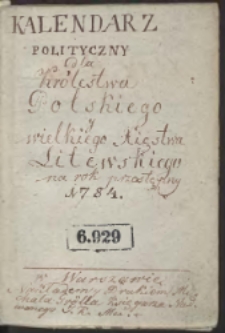 KALENDARZ
POLITYCZNY
dla
Królestwa
Polskiego
y
wielkiego Xięstwa
Litewskiego
na rok przestępny
1784.
6.929
w Warszawie
Nakładem y Drukiem Mi-
chała Grölla Księgarza Nad-
wornego J. K. Mci